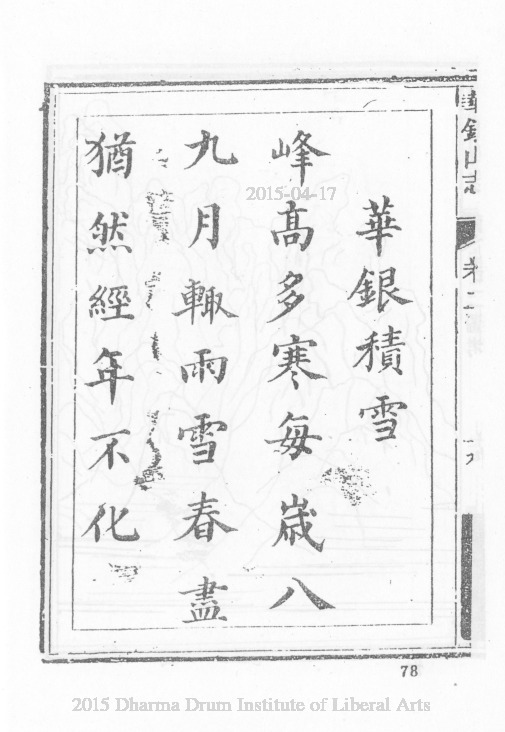 華銀山志
卷二
華銀積雪
峰高多寒每歲八
九月輙雨雪春盡
猶然經年不化
2015-04-17
78
2015 Dharma Drum Institute of Liberal Arts